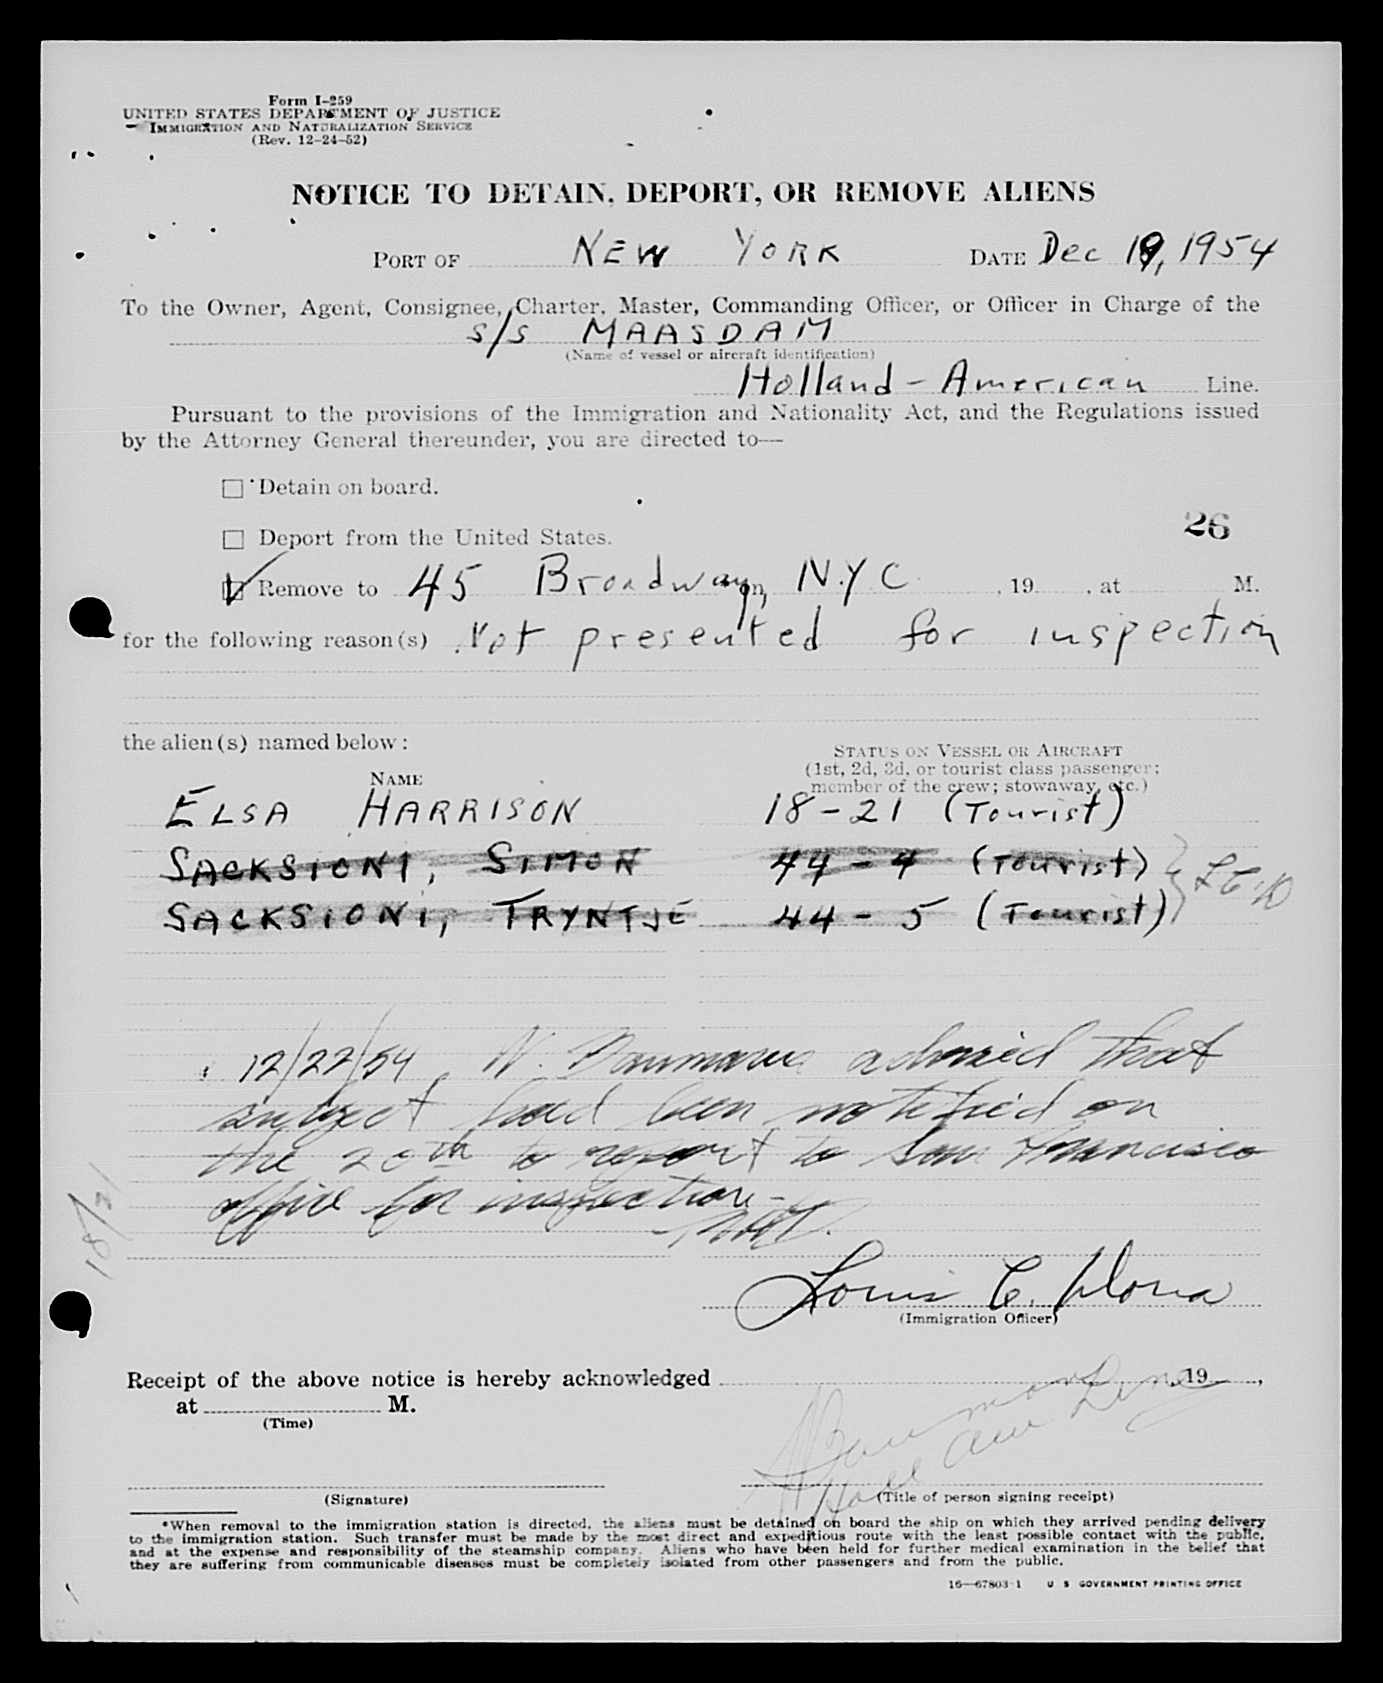 Form I-259
UNITED STATES DEPARTMENT OF JUSTICE
IMMIGRATION AND NATURALIZATION SERVICE
(Rev. 12-24-52)
NOTICE TO DETAIN, DEPORT, OR REMOVE ALIENS
PORT OF NEW YORK DATE Dec 19, 1954
To the Owner, Agent, Consignee, Charter, Master, Commanding Officer, or Officer in Charge of the
S/S MAASDAM
(Name of vessel or aircraft identification)
Holland-American Line.
Pursuant to the provisions of the Immigration and Nationality Act, and the Regulations issued
by the Attorney General thereunder, you are directed to—
Detain on board.
26
Deport from the United States.
Remove to 45 Broadway, N.Y.C. on, 19, at M.
for the following reason(s) Not presented for inspection
the alien(s) named below:
STATUS ON VESSEL OR AIRCRAFT
(1st, 2d, 3d, or tourist class passenger;
NAME member of the crew; stowaway, etc.)
ELSA HARRISON 18-21 (Tourist)
SACKSIONI, SIMON 44-4 (Tourist)
SACKSIONI, TRYNTJE 44-5 (Tourist)
12/22/54 N. advised that
subject had been notified on
the 20th to report to San Francisco
office for inspection-
18/21
Louis C.
(Immigration Officer)
Receipt of the above notice is hereby acknowledged , 19 ,
at M.
(Time)
Line
(Signature) (Title of person signing receipt)
*When removal to the immigration station is directed, the aliens must be detained on board the ship on which they arrived pending delivery
to the immigration station. Such transfer must be made by the most direct and expeditious route with the least possible contact with the public,
and at the expense and responsibility of the steamship company. Aliens who have been held for further medical examination in the belief that
they are suffering from communicable diseases must be completely isolated from other passengers and from the public.
16—67803-1 U S GOVERNMENT PRINTING OFFICE